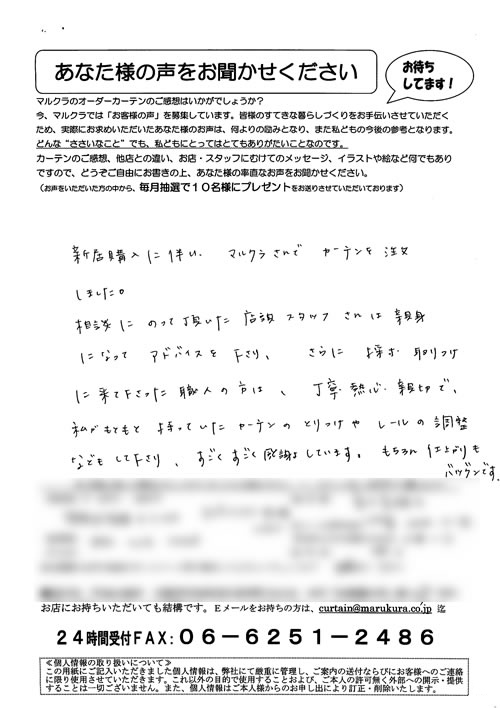 あなた様の声をお聞かせください
お待ち
してます！
マルクラのオーダーカーテンのご感想はいかがでしょうか？
今、マルクラでは「お客様の声」を募集しています。皆様のすてきな暮らしづくりをお手伝いさせていただく
ため、実際にお求めいただいたあなた様のお声は、何よりの励みとなり、また私どもの今後の参考となります。
どんな“ささいなこと”でも、私どもにとってはとてもありがたいことなのです。
カーテンのご感想、他店との違い、お店・スタッフにむけてのメッセージ、イラストや絵など何でもあり
ですので、どうぞご自由にお書きの上、あなた様の率直なお声をお聞かせください。
（お声をいただいた方の中から、毎月抽選で１０名様にプレゼントをお送りさせていただいております）
新居購入に伴い、マルクラさんで カーテンを注文
しました。
相談に のって頂いた 店頭 スタッフ さんは 親身
になって アドバイスを 下さり、 さらに 採寸 取りつけ
に来て下さった 職人の方は、 丁寧・熱心・親切で、
私がもともと 持っていた カーテンの とりつけや レールの 調整
なども して下さり、 すごく すごく 感謝しています。 もちろん 仕上がりも
バツグンです。
お店にお持ちいただいても結構です。Ｅメールをお持ちの方は、curtain@marukura.co.jp 迄
２４時間受付ＦＡＸ：０６－６２５１－２４８６
≪個人情報の取り扱いについて≫
この用紙にご記入いただきました個人情報は、弊社にて厳重に管理し、ご案内の送付ならびにお客様へのご連絡
に限り使用させていただきます。これ以外の目的で使用することおよび、ご本人の許可無く外部への開示・提供
することは一切ございません。また、個人情報はご本人様からのお申し出により訂正・削除いたします。